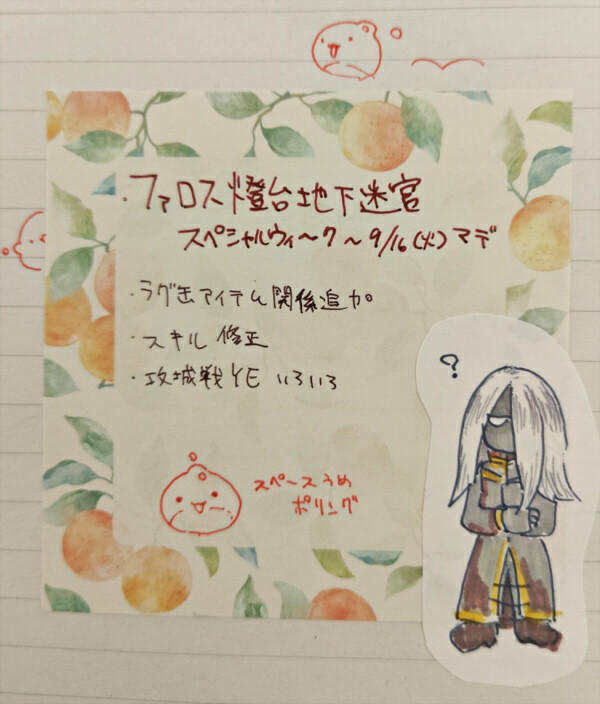 ・ファロス燈台地下迷宮
スペシャルウィ〜ク〜9/16(火)マデ
・ラグ缶アイテム関係追加
・スキル修正
・攻城戦YE いろいろ
スペースうめ
ポリング
?